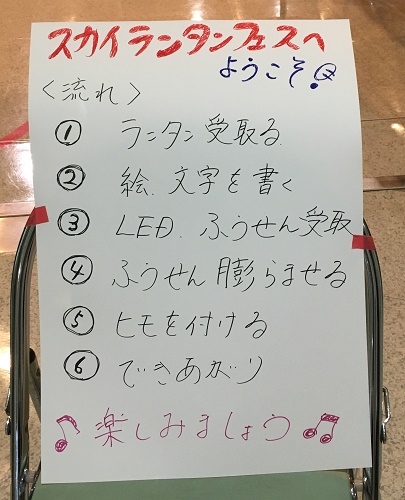 スカイランタンフェスへ
ようこそ!
〈流れ〉
① ランタン受取る
② 絵、文字を書く
③ LED、ふうせん受取
④ ふうせん膨らませる
⑤ ヒモを付ける
⑥ できあがり
♪楽しみましょう♫